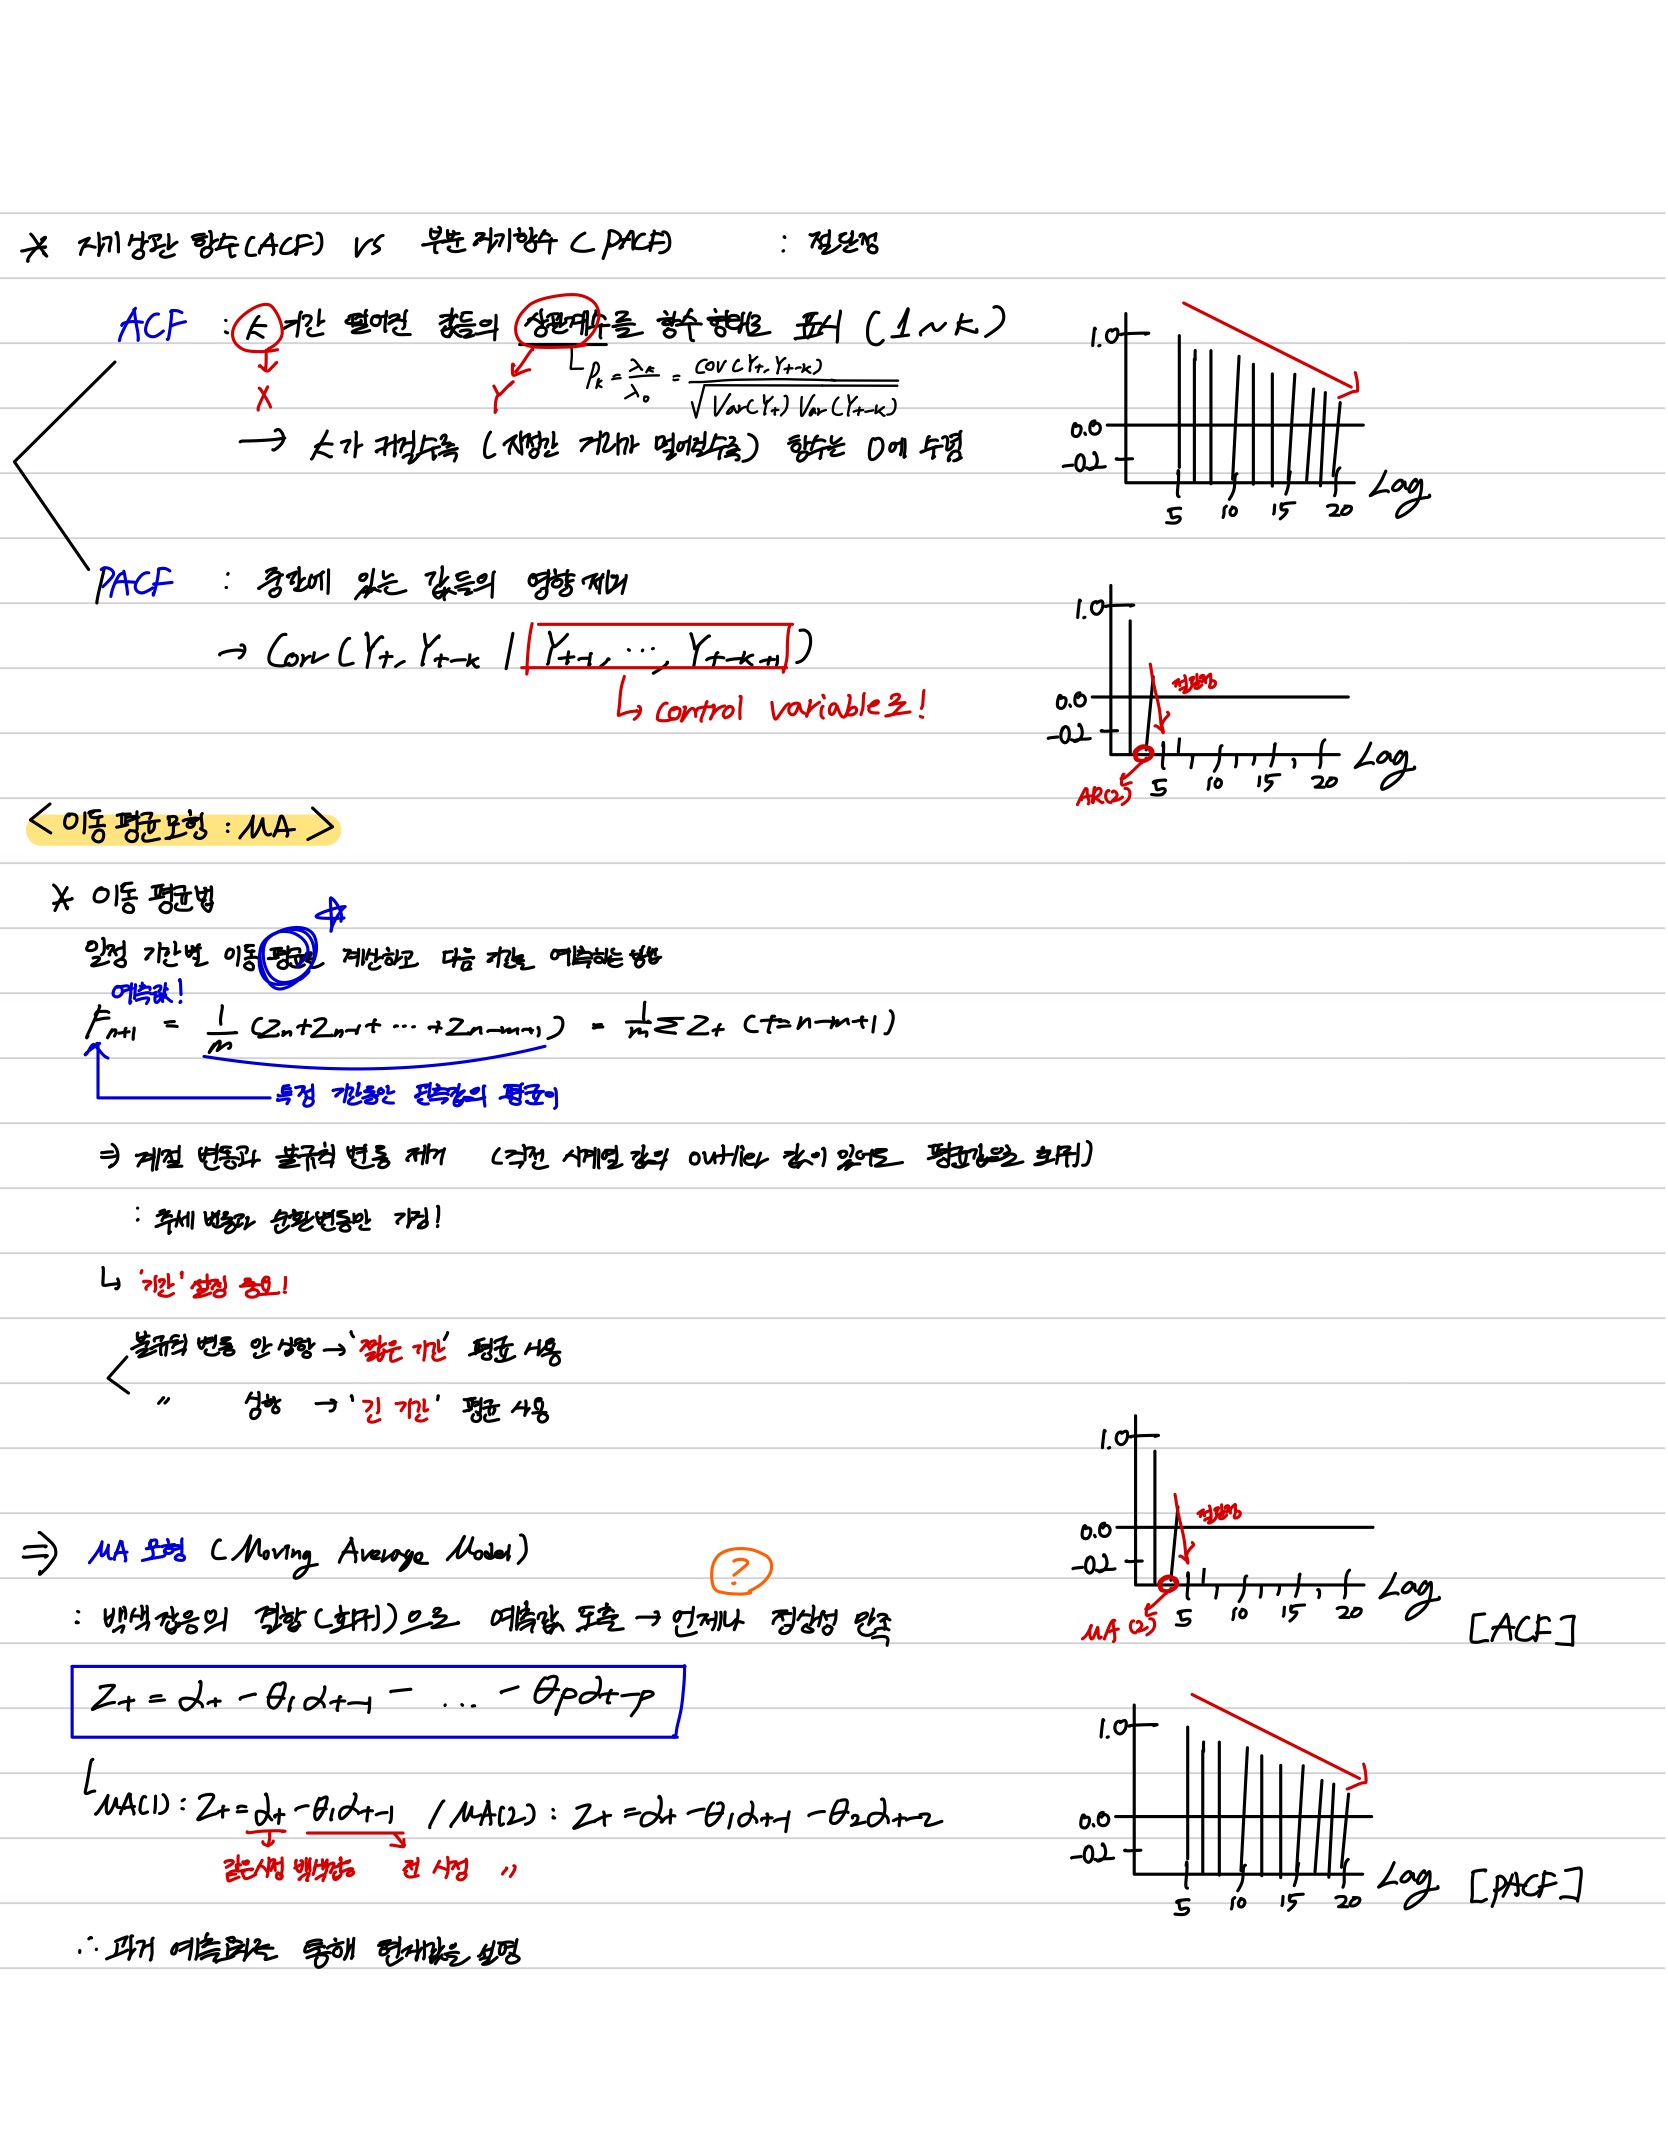 * 자기상관 함수(ACF) vs 부분자기함수 (PACF) : 절단점
ACF : k 기간 떨어진 값들의 상관계수를 함수 형태로 표시 (1~k)
X
Y
ρₖ = λₖ/λ₀ = Cov(Yt, Yt-k) / √Var(Yt) Var(Yt-k)
→ k가 커질수록 (시점간 거리가 멀어질수록) 함수는 0에 수렴
1.0
0.0
-0.2
5 10 15 20 Lag
PACF : 중간에 있는 값들의 영향 제거
→ Corr (Yt, Yt-k | Yt-1, ..., Yt-k+1)
↳ control variable로!
1.0
절단점
0.0
-0.2
5 10 15 20 Lag
AR(2)
<이동 평균모형 : MA>
* 이동 평균법
일정 기간별 이동 평균을 계산하고 다음 기간을 예측하는 방법
예측값!
Fn+1 = 1/m (Zn+Zn-1+ ... +Zn-m+1) = 1/m Σ Zt (t=n-m+1)
특정 기간동안 관측값의 평균이
⇒ 계절 변동과 불규칙 변동 제거 (직전 시계열 값의 outlier 값이 있어도 평균값으로 회귀)
: 추세 변동과 순환변동만 가정!
↳ '기간' 설정 중요!
불규칙 변동 안 심함 → '짧은 기간' 평균 사용
〃 심함 → '긴 기간' 평균 사용
1.0
절단점
0.0
-0.2
5 10 15 20 Lag
MA(2)
[ACF]
⇒ MA 모형 (Moving Average Model)
?
: 백색잡음의 결합(회귀)으로 예측값 도출 → 언제나 정상성 만족
Zt = αt - θ1αt-1 - ... - θpαt-p
MA(1) : Zt = αt - θ1αt-1 / MA(2) : Zt = αt - θ1αt-1 - θ2αt-2
같은시점 백색잡음 전 시점 〃
1.0
0.0
-0.2
5 10 15 20 Lag
[PACF]
∴ 과거 예측오차를 통해 현재값을 설명